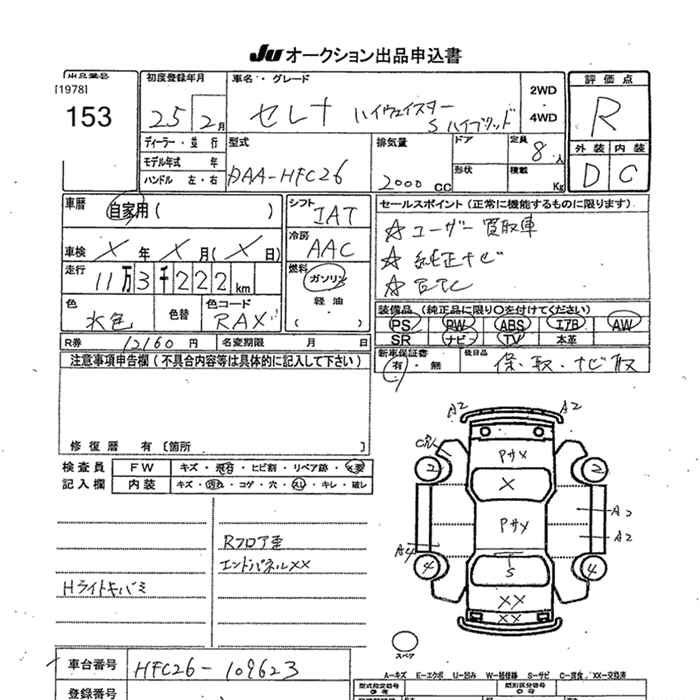 JU オークション出品申込書
出品番号
[1978]
153
初度登録年月
25 2月
車名・グレード
セレナ ハイウェイスター
S ハイブリッド
2WD
4WD
評価点
R
外装 内装
D C
ディーラー・並行
モデル年式 年
ハンドル 左・右
型式
DAA-HFC26
排気量
2000 CC
ドア
形状
定員
8人
積載
Kg
車歴
自家用 ( )
シフト
IAT
冷房
AAC
セールスポイント(正常に機能するものに限ります)
☆ ユーザー買取車
☆ 純正ナビ
☆ ETC
車検 X年 X月(X日)
走行 11万3千222km
燃料
ガソリン
軽油
( )
色
水色
色替
色コード
RAX
装備品(純正品に限り○を付けてください)
PS PW ABS エアB AW
SR ナビ TV 本革
R券 12160円 名変期限 月 日
新車保証書
有・無
後日品
保・取・ナビ取
注意事項申告欄(不具合内容等は具体的に記入して下さい)
修復歴 有[箇所 ]
検査員
記入欄
FW キズ・飛石・ヒビ割・リペア跡・交要
内装 キズ・汚れ・コゲ・穴・スレ・キレ・破レ
Hライトキバミ
Rフロア歪
エンドパネルXX
A2 A2
PサメX
2 2
X
Pサメ
A2
A2
A4
4 4
S
XX
XX
スペア
A-キズ E-エクボ U-凹み W-補修痕 S-サビ C-腐食 XX-交換済
車台番号 HFC26-109623
登録番号
型式指定番号
類別区分番号